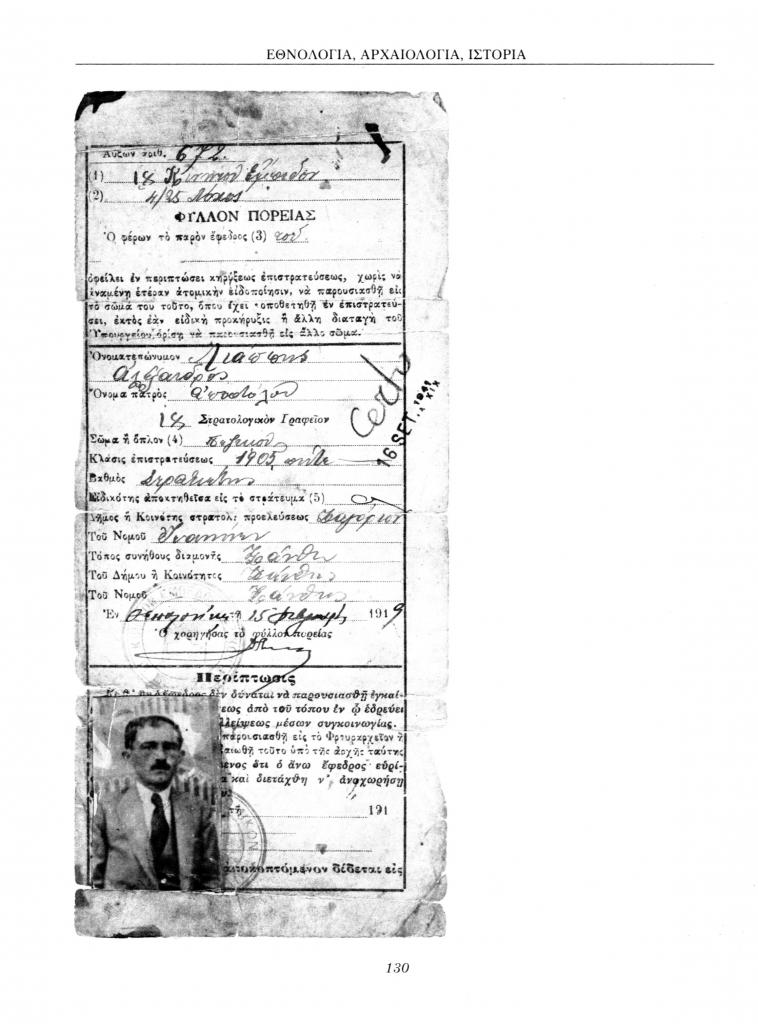 ΕΘΝΟΛΟΓΙΑ, ΑΡΧΑΙΟΛΟΓΙΑ, ΙΣΤΟΡΙΑ
Αὔξων ἀριθ. 672.
(1) 18
(2) 4/25 Λόχος
ΦΥΛΛΟΝ ΠΟΡΕΙΑΣ
Ὁ φέρων τὸ παρὸν ἔφεδρος (3) τοῦ
ὀφείλει ἐν περιπτώσει κηρύξεως ἐπιστρατεύσεως, χωρὶς νὰ
ἀναμένῃ ἑτέραν ἀτομικὴν εἰδοποίησιν, νὰ παρουσιασθῇ εἰς
τὸ σῶμα του τοῦτο, ὅπου ἔχει τοποθετηθῆ ἐν ἐπιστρατεύ-
σει, ἐκτὸς ἐὰν εἰδικὴ προκήρυξις ἢ ἄλλη διαταγὴ τοῦ
Ὑπουργείου ὁρίσῃ νὰ παρουσιασθῇ εἰς ἄλλο σῶμα.
Ὀνοματεπώνυμον Λιάππης
Ἀλέξανδρος
Ὄνομα πατρὸς Ἀποστόλου
18 Στρατολογικὸν Γραφεῖον
Σῶμα ἢ ὅπλον (4) πεζικοῦ
Κλάσις ἐπιστρατεύσεως 1905
Βαθμὸς Στρατιώτης
Εἰδικότης ἀποκτηθεῖσα εἰς τὸ στράτευμα (5)
Δῆμος ἢ Κοινότης στρατολ. προελεύσεως Ζαγόριον
Τοῦ Νομοῦ Ἰωαννίνων
Τόπος συνήθους διαμονῆς Ξάνθη
Τοῦ Δήμου ἢ Κοινότητος Ξάνθης
Τοῦ Νομοῦ Ξάνθης
Ἐν Θεσσαλονίκῃ τῇ 15 1919
Ὁ χορηγήσας τὸ φύλλον πορείας
16 SET. 1941 XIX
Περίπτωσις
ἔφεδρος δὲν δύναται νὰ παρουσιασθῇ ἐγκαί-
εως ἀπὸ τοῦ τόπου ἐν ᾧ ἑδρεύει
λλείψεως μέσων συγκοινωνίας.
παρουσιασθῇ εἰς τὸ Φρουραρχεῖον ἢ
αιωθῇ τοῦτο ὑπὸ τῆς ἀρχῆς ταύτης
ενος ὅτι ὁ ἄνω ἔφεδρος εὑρί-
α καὶ διετάχθη ν' ἀναχωρήσῃ
τῇ 191
ἀποκοπτόμενον δίδεται εἰς
130